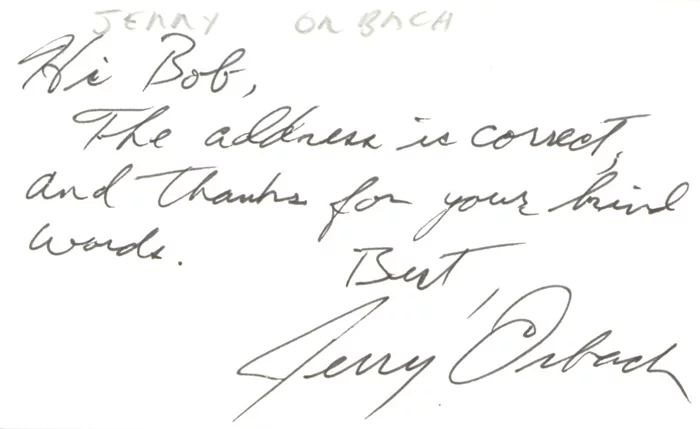 JERRY ORBACH
Hi Bob,
The address is correct,
and thanks for your kind
words.
Best,
Jerry Orbach